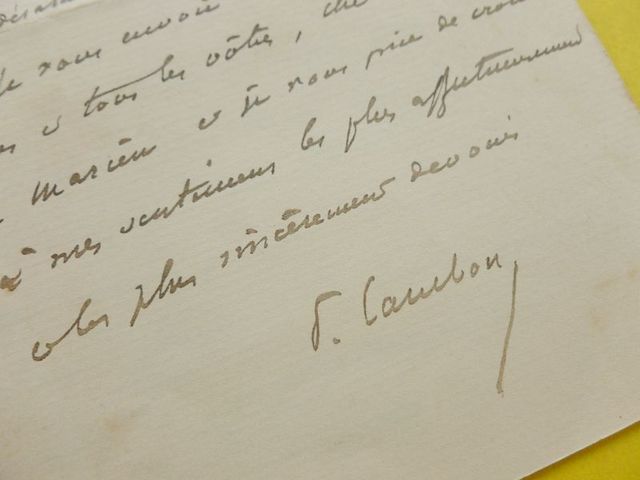 Je vous envoie
à tous les vôtres, che
Marcien et je vous prie de croire
à mes sentimens les plus affectueusement
et les plus sincèrement dévoués
P. Cambon